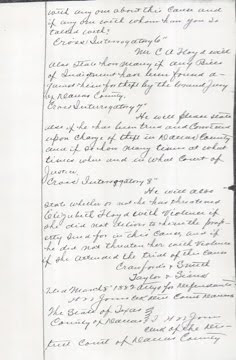 with any one about this Cause and
if any one with whom han you so
talked with?
Cross Interrogatory 6"
Mr C A Floyd will
also state how many if any Bills
of Indictment have been found a-
gainst him for theft by the Grand Jury
in Dallas County.
Cross Interrogatory 7"
He will please state
also if he has been tried and Convicted
upon charge of theft in Dallas County
and if so how many times at what
times when and in what Court of
Justice.
Cross Interrogatory 8"
He will also
state whether or not he has threatened
Elizabeth Floyd with Violence if
she did not deliver to him the prop-
erty sued for in this Cause and if
he did not threaten her with Violence
if she attended the trial of this Cause
Crawford & Smith
Taylor &
Filed March 8" 1882 Attys for Defendants
H W Jones Clk Dist Court Dallas
The State of Texas
County of Dallas I H W Jones
Clerk of the Dis-
trict Court of Dallas County